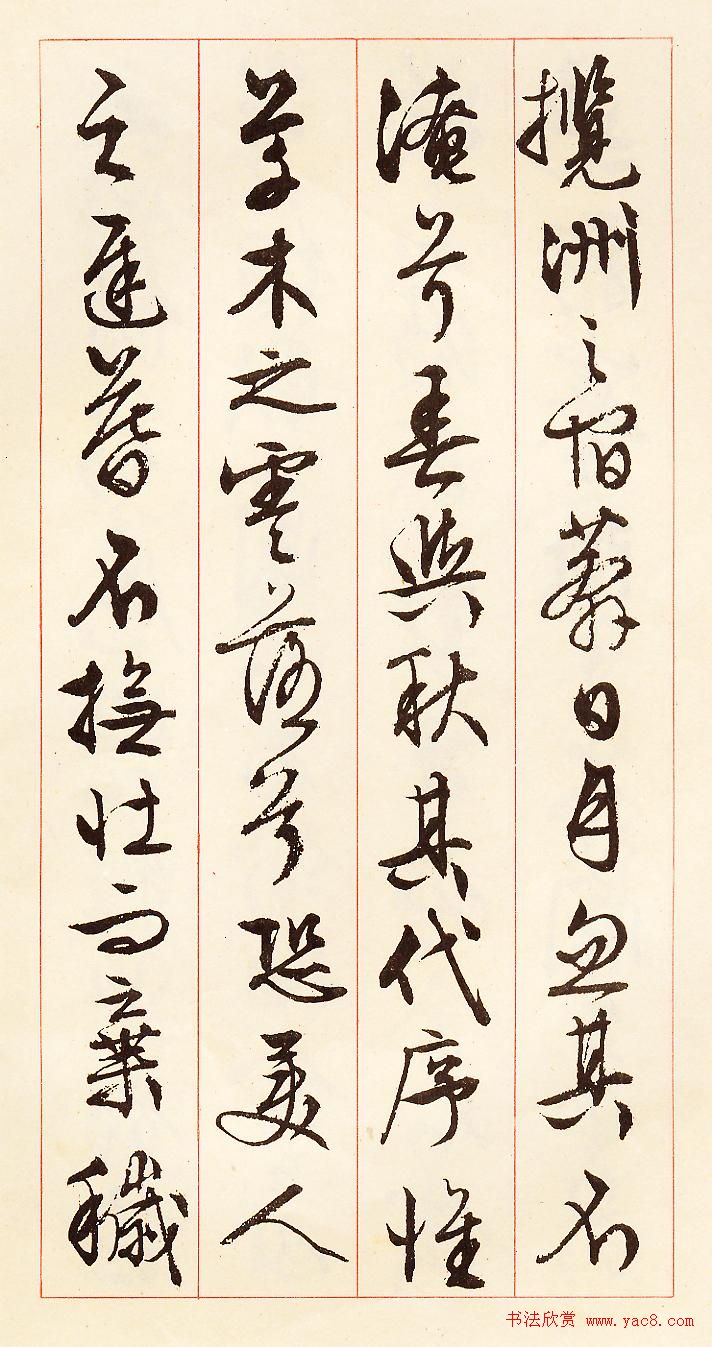 攬洲之宿莽日月忽其不
淹兮春與秋其代序惟
草木之零落兮恐美人
之遲暮不撫壯而棄穢
书法欣赏 www.yac8.com